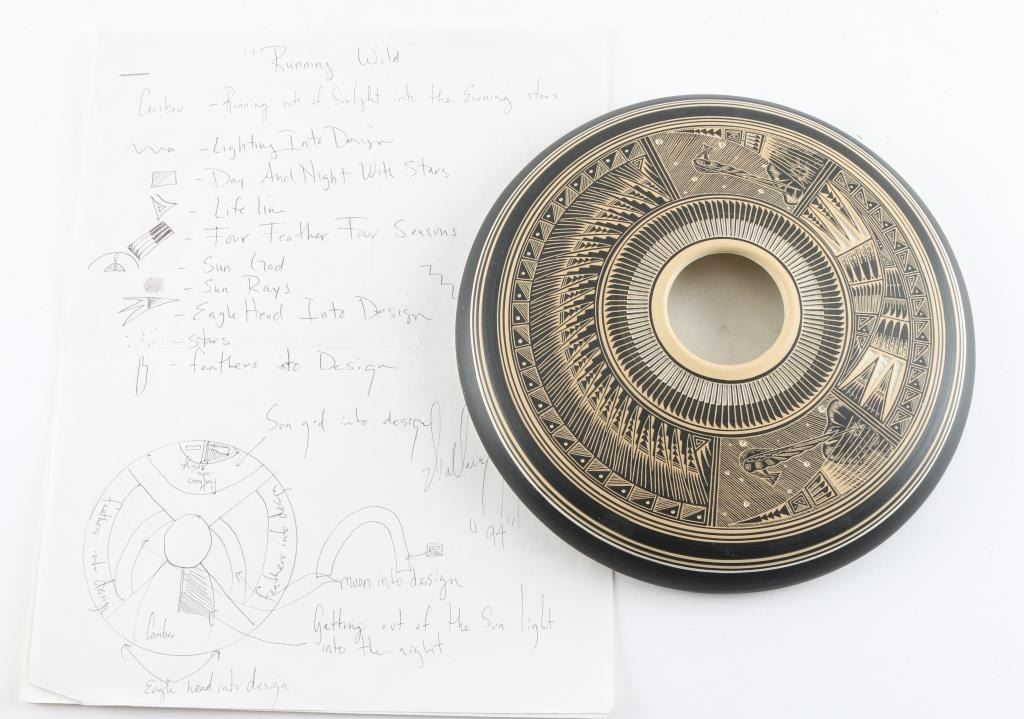 "Running Wild"
Caribou - Running out of Sunlight into the Evening stars
- Lighting Into Design
- Day And Night With Stars
- Life line
- Four Feather Four Seasons
- Sun God
- Sun Rays
- Eagle Head Into Design
- stars
- feathers into Design
Sun god into design
feathers into design
feathers into design
"94"
moon into design
Caribou
Getting out of the Sun light
into the night.
Eagle head into design